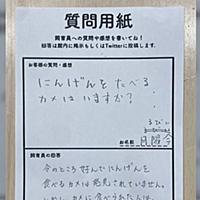 質問用紙
飼育員への質問や感想を書いてね！
回答は館内に掲示もしくはTwitterに投稿します。
お客様の質問・感想
にんげんをたべる
カメはいますか？
お名前
飼育員の回答
今のところ好んでにんげんを
食べるカメは発見されていません。